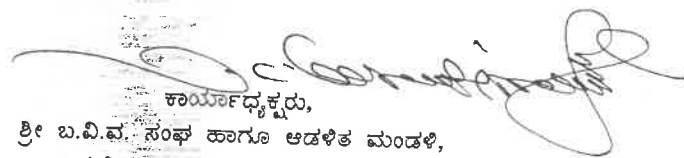 ಕಾರ್ಯಾಧ್ಯಕ್ಷರು,
ಶ್ರೀ ಬ.ವಿ.ವ. ಸಂಘ ಹಾಗೂ ಆಡಳಿತ ಮಂಡಳಿ,